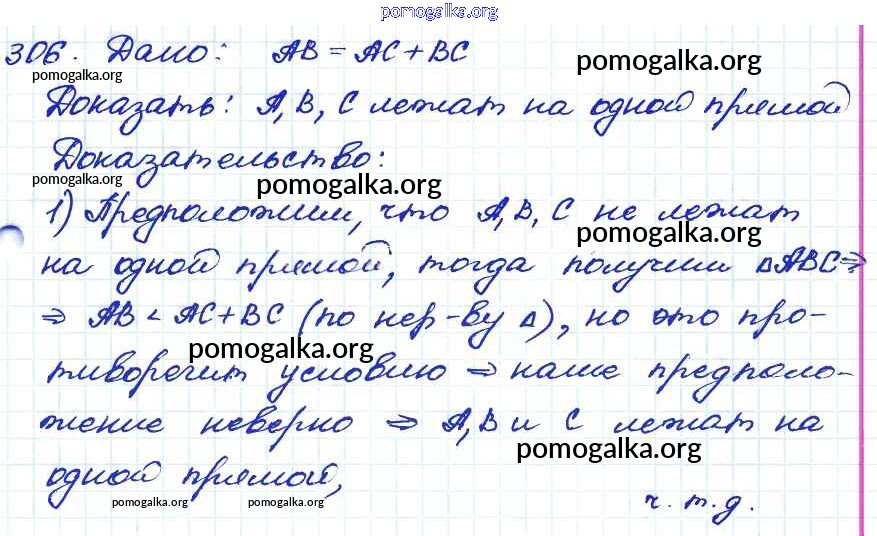 pomogalka.org
306. Дано: AB = AC + BC
pomogalka.org
pomogalka.org
Доказать: A, B, C лежат на одной прямой
Доказательство:
pomogalka.org
pomogalka.org
1) Предположим, что A, B, C не лежат
pomogalka.org
на одной прямой, тогда получим ΔABC ⇒
⇒ AB < AC + BC (по нер-ву Δ), но это про-
pomogalka.org
тиворечит условию ⇒ наше предполо-
жение неверно ⇒ A, B и C лежат на
pomogalka.org
одной прямой,
pomogalka.org pomogalka.org
ч. т. д.